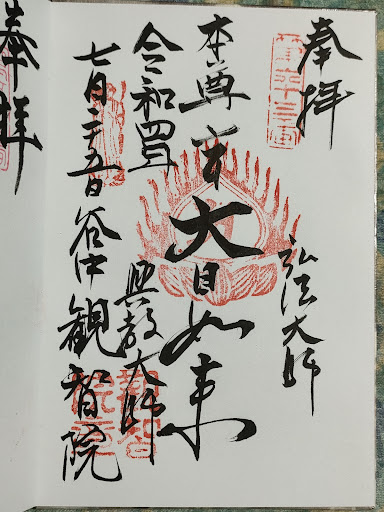 奉拝
弘法大師
本尊 大日如来
興教大師
令和四年
七月二十五日 谷中 観智院
奉拝